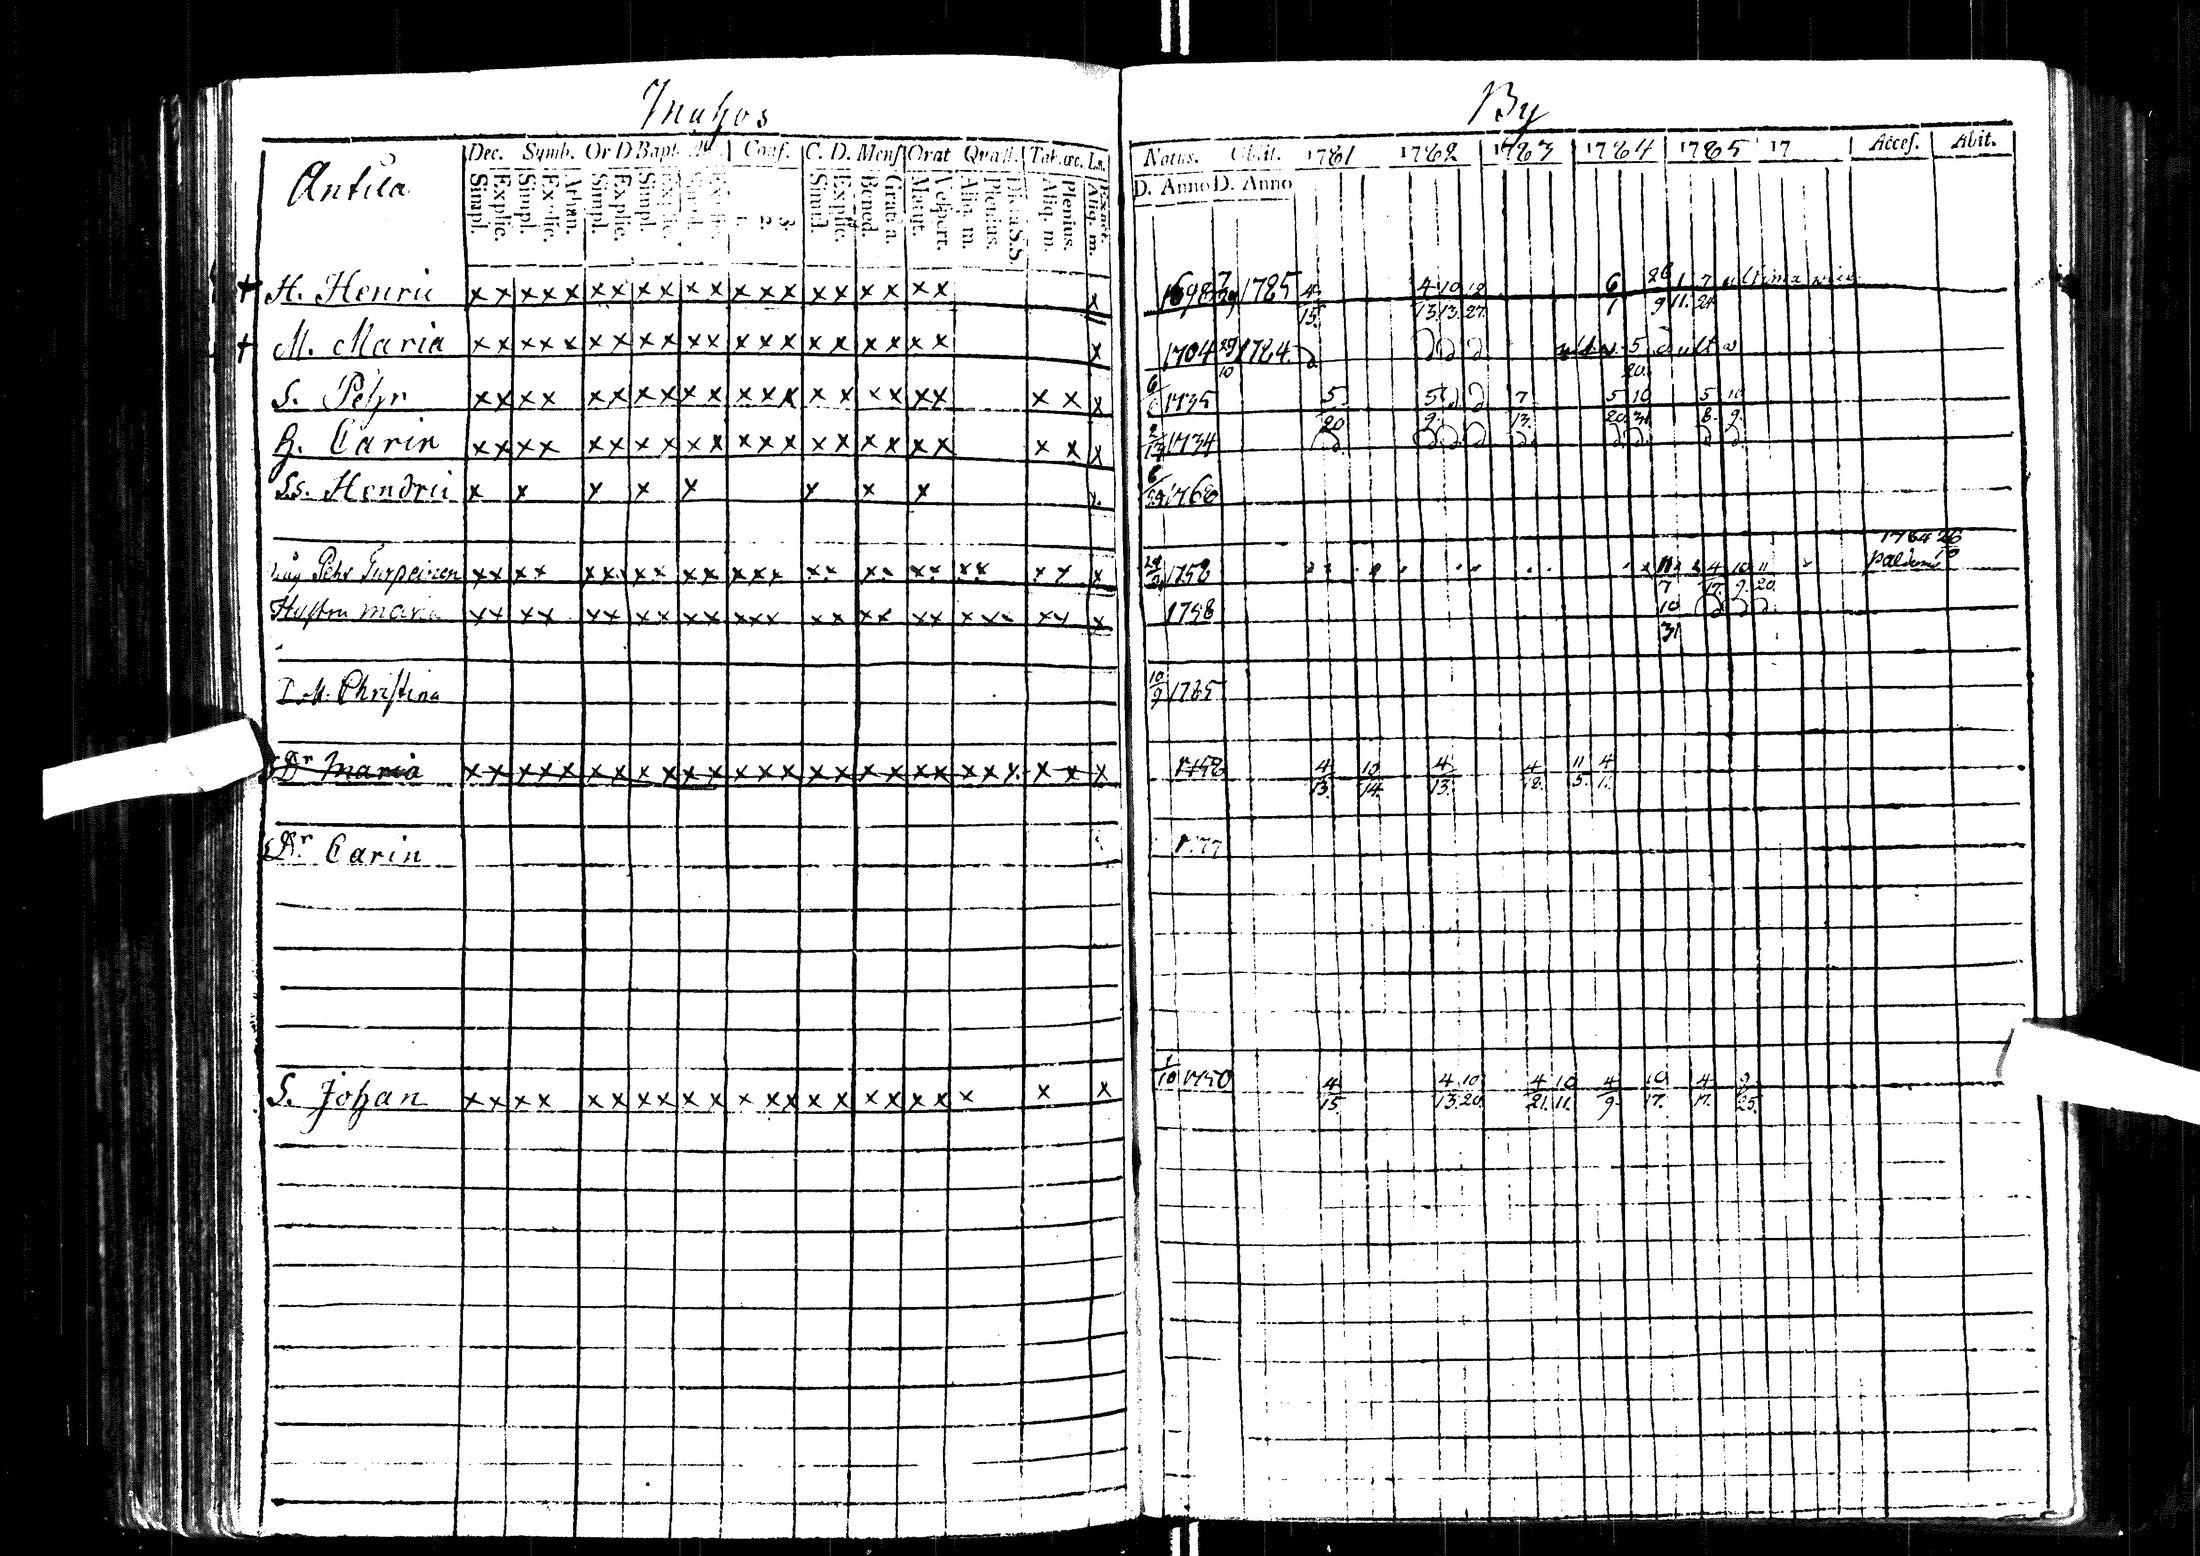 By
Dec. Symb. Or D Bapt. Conf. C. D. Mens Orat Quæst. Tab. œc.
Natus. Obiit. 1781 1782 1783 1784 1785 17 Acces. Abit.
Antila
Simpl. Explic. Simpl. Explic. Athan. Simpl. Explic. Simpl. Explic. 1. 2. 3. Simpl. Explic. Bened. Grat. a. Matut. Vespert. Aliq. m. Plenius. Dicta S.S. Aliq. m. Plenius. Aliq. m.
D. Anno D. Anno
+ H. Henric x x x x x x x x x x x x x x x x x x x x 1698 1785 4/15. 4/13 10/13. 12/27. 6/1 26/9 1/11. 7/24 ultima vice
+ M. Maria x x x x x x x x x x x x x x x x x x x x 1704 29/10 1784 5/20
S. Pehr x x x x x x x x x x x x x x x x x x x x x x 1735 5/20 5/9. 7/13. 5/20 10/31 5/8. 10/9.
H. Carin x x x x x x x x x x x x x x x x x x x x x x 1734
Ss. Hendric x x x x x x x x 1768
Pehr x x x x x x x x x x x x x x x x x x x x x x x x 1758 11/7 4/17. 10/9. 11/20. 1784 26/10
Hustru Maria x x x x x x x x x x x x x x x x x x x x x x x x x 1758 10/31
D. M. Christina 10/9 1785
Dr Maria x x x x x x x x x x x x x x x x x x x x x x x x x 4/13. 10/14. 4/13. 4/18. 11/5. 4/1.
Dr Carin 1777
S. Johan x x x x x x x x x x x x x x x x x x x x x x 1/10 1750 4/15. 4/13. 10/20. 4/21. 10/11. 4/9. 10/17. 4/17. 9/25.